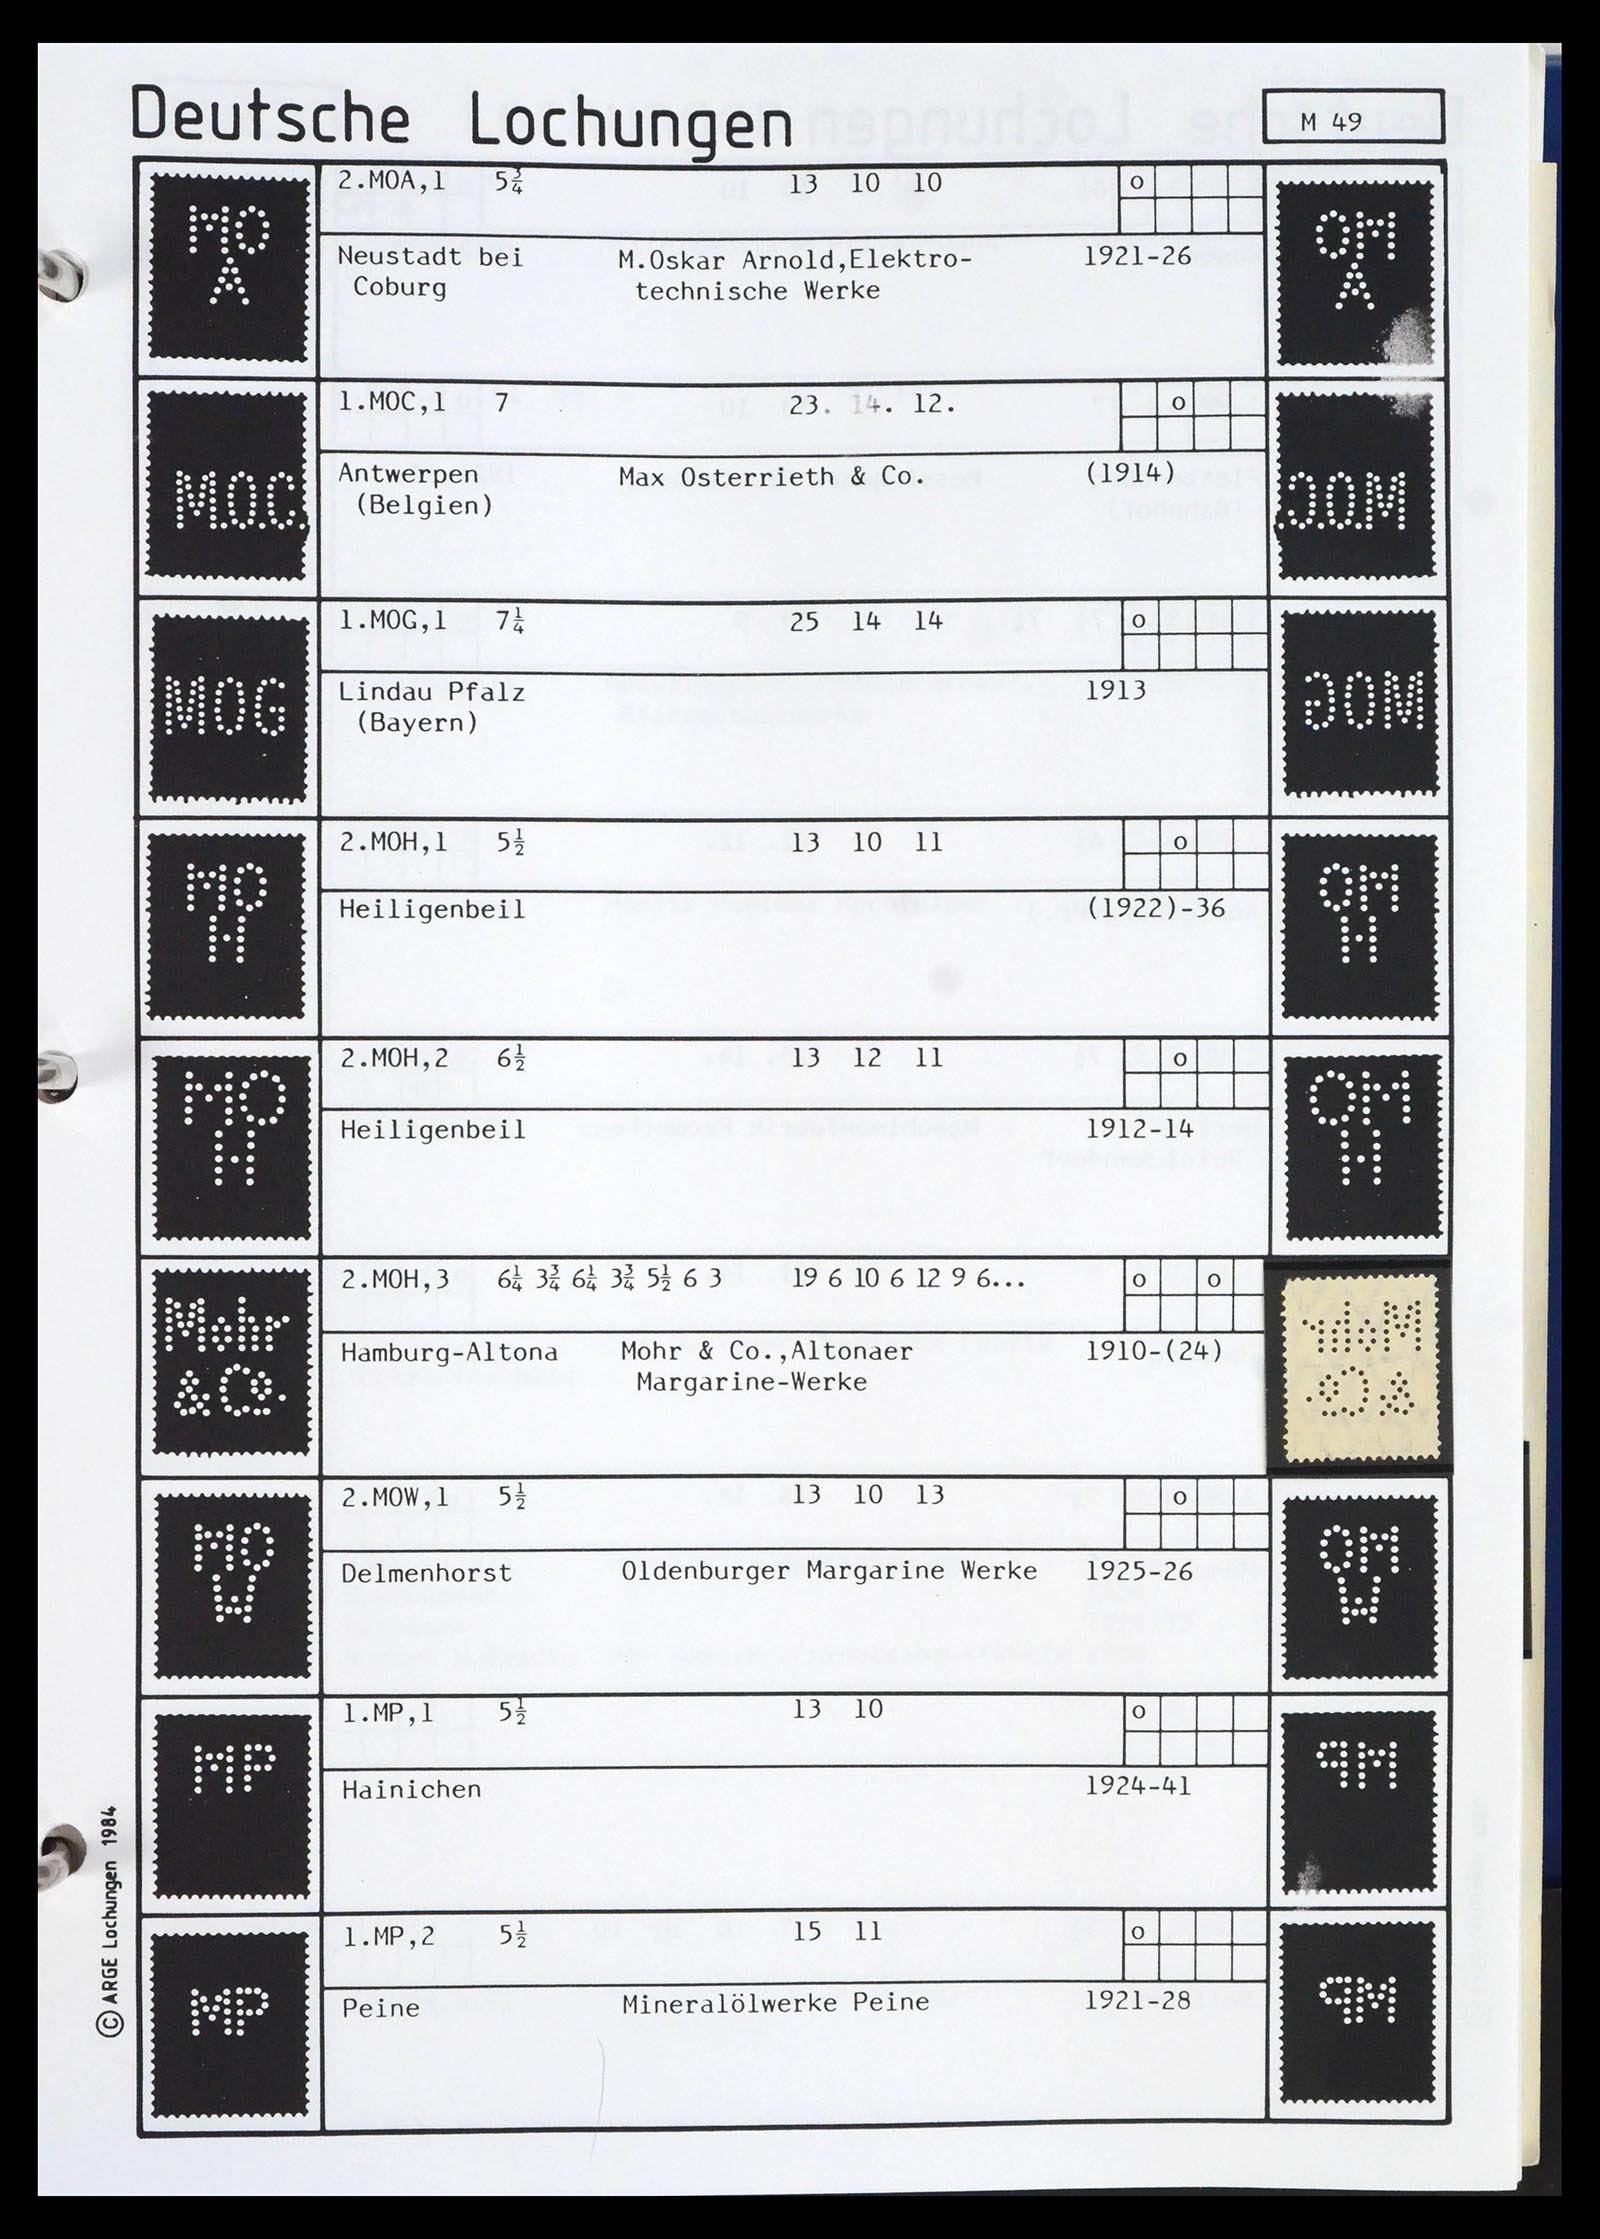 Deutsche Lochungen
M 49
MO
A
2.MOA,1 5¾ 13 10 10
o
Neustadt bei
Coburg
M.Oskar Arnold,Elektro-
technische Werke
1921-26
MO
A
M.O.C.
1.MOC,1 7 23. 14. 12.
o
Antwerpen
(Belgien)
Max Osterrieth & Co.
(1914)
M.O.C.
MOG
1.MOG,1 7¼ 25 14 14
o
Lindau Pfalz
(Bayern)
1913
MOG
MO
H
2.MOH,1 5½ 13 10 11
o
Heiligenbeil
(1922)-36
MO
H
MO
H
2.MOH,2 6½ 13 12 11
o
Heiligenbeil
1912-14
MO
H
Mohr
& Co.
2.MOH,3 6¼ 3¾ 6¼ 3¾ 5½ 6 3 19 6 10 6 12 9 6...
o o
Hamburg-Altona
Mohr & Co.,Altonaer
Margarine-Werke
1910-(24)
Mohr
& Co.
MO
W
2.MOW,1 5½ 13 10 13
o
Delmenhorst
Oldenburger Margarine Werke
1925-26
MO
W
MP
1.MP,1 5½ 13 10
o
Hainichen
1924-41
MP
MP
1.MP,2 5½ 15 11
o
Peine
Mineralölwerke Peine
1921-28
MP
© ARGE Lochungen 1984